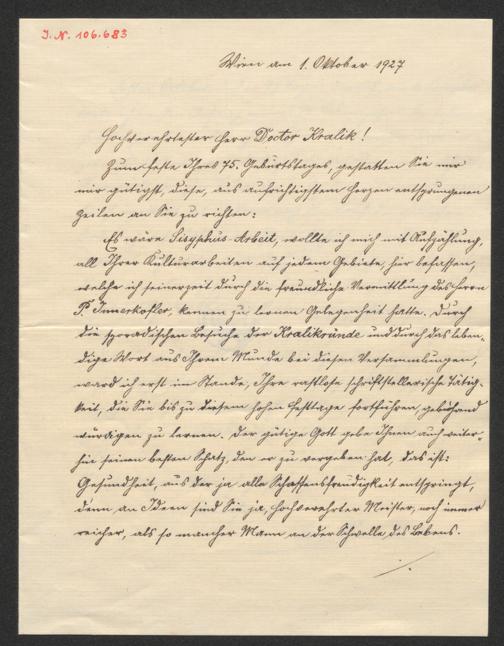 J. N. 106.683
Wien am 1. Oktober 1927
Hochverehrtester Herr Doctor Kralik!
Zum Feste Ihres 75. Geburtstages, gestatten Sie mir
mir gütigst, diese, aus aufrichtigstem Herzen entsprungenen
Zeilen an Sie zu richten:
Es wäre Sisyphus-Arbeit, wollte ich mich mit Aufzählung,
all Ihrer Kulturarbeiten auf jedem Gebiete, hier befassen,
welche ich seinerzeit durch die freundliche Vermittlung des Herrn
P. Innerkofler, kennen zu lernen Gelegenheit hatte. Durch
die sporadischen Besuche der Kralikründe und durch das leben-
dige Wort aus Ihrem Munde bei diesen Versammlungen,
ward ich erst im Stande, Ihre rastlose schriftstellerische Tätig-
keit, die Sie bis zu diesem hohen Festtage fortführen, gebührend
würdigen zu lernen. Der gütige Gott gebe Ihnen auch weiter-
hin seinen besten Schatz, den er zu vergeben hat, das ist:
Gesundheit, aus der ja alle Schaffensfreudigkeit entspringt,
denn an Ideen sind Sie ja, hochverehrter Meister, noch immer
reicher, als so mancher Mann an der Schwelle des Lebens.